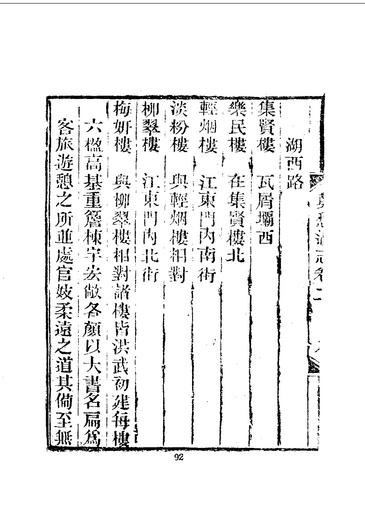 湖西路
集賢樓 瓦屑壩西
樂民樓 在集賢樓北
輕烟樓 江東門內南街
淡粉樓 與輕烟樓相對
柳翠樓 江東門內北街
梅妍樓 與柳翠樓相對諸樓皆洪武初建每樓
六楹高基重簷棟宇宏敞各顏以大書名扁為
客旅遊憩之所並處官妓柔遠之道其備至無
92